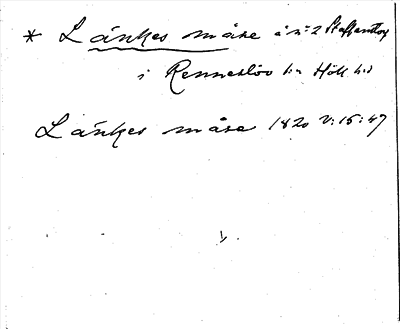 * Lånkes måse å n:2 Staffanstorp
i Renneslöv s:n Hök h:d
Lånkes måse 1820 V:15:47